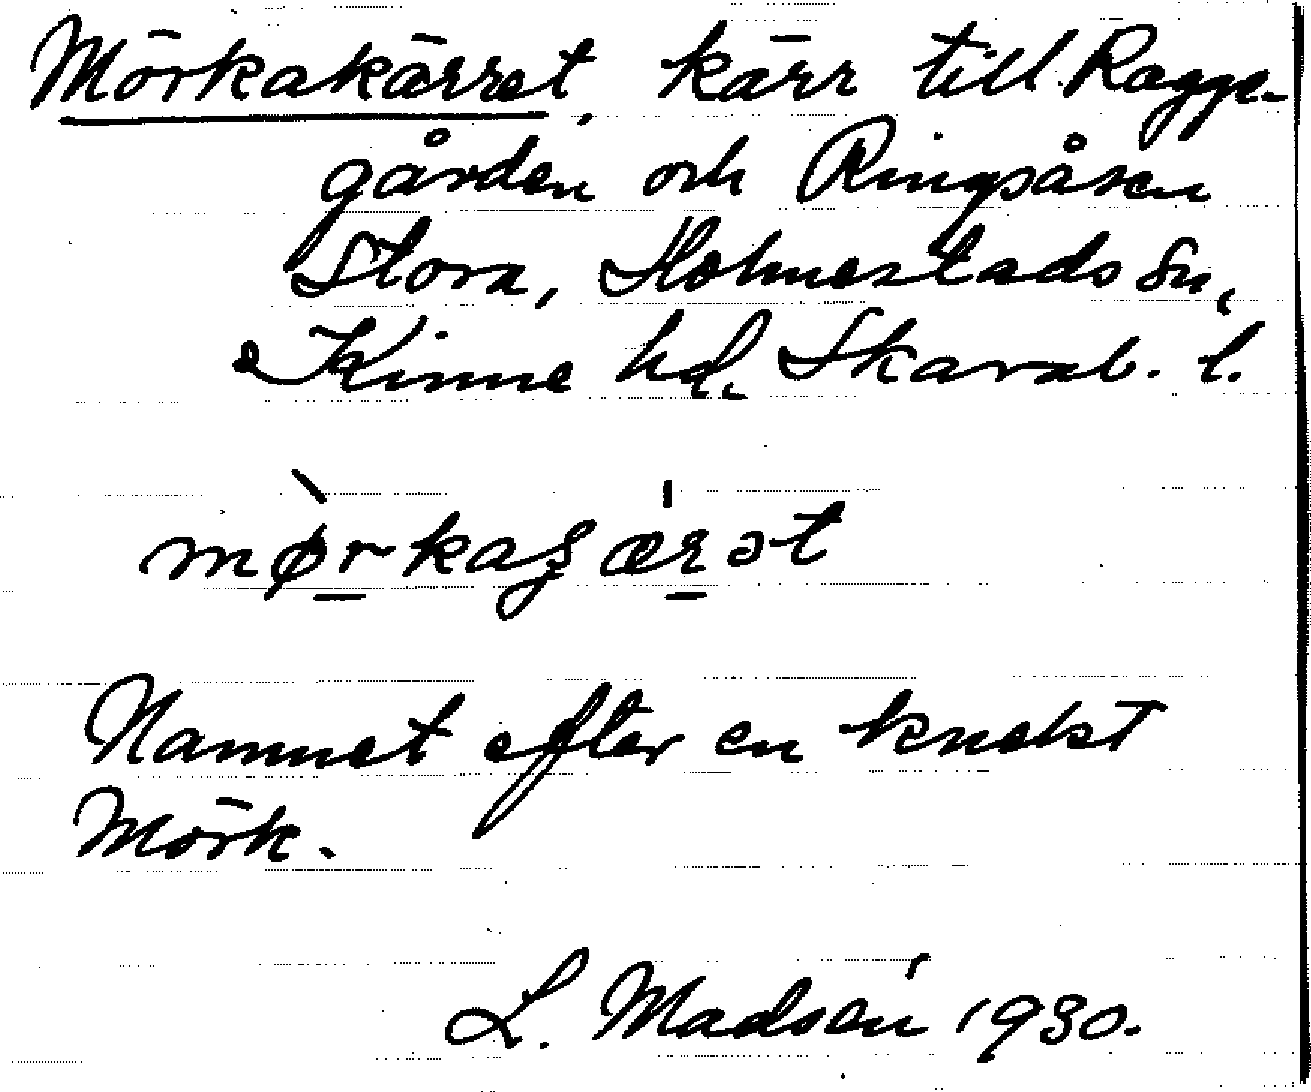 Mörkakärret, kärr till Ragge-
gården och Ringsåsen
Stora, Holmestads sn,
Kinne hd, Skarab. l.
mørkaʂærət
Namnet efter en knekt
Mörk.
L. Madsén 1930.